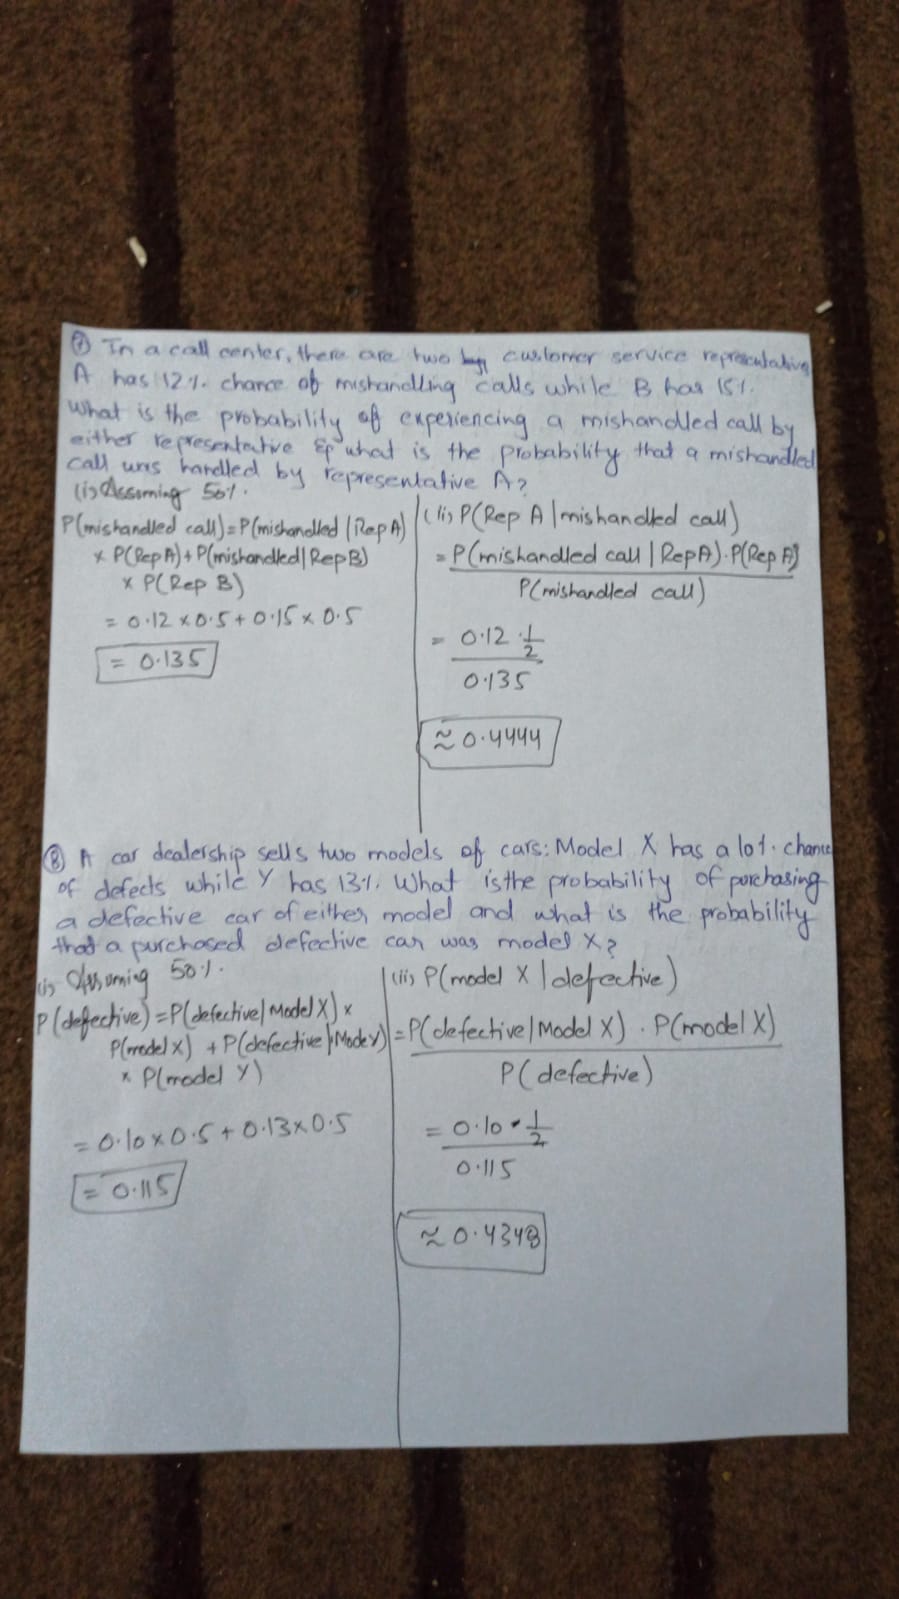 ⑦ In a call center, there are two customer service representatives
A has 12%. chance of mishandling calls while B has 15%.
What is the probability of experiencing a mishandled call by
either representative & what is the probability that a mishandled
call was handled by representative A?
(i) Assuming 50%.
P(mishandled call) = P(mishandled | Rep A)
× P(Rep A) + P(mishandled | Rep B)
× P(Rep B)
= 0.12 × 0.5 + 0.15 × 0.5
= 0.135
(ii) P(Rep A | mishandled call)
= P(mishandled call | Rep A) · P(Rep A)
P(mishandled call)
= 0.12 · 1/2
0.135
≈ 0.4444
⑧ A car dealership sells two models of cars: Model X has a 10%. chance
of defects while Y has 13%. What is the probability of purchasing
a defective car of either model and what is the probability
that a purchased defective car was model X?
(i) Assuming 50%.
P(defective) = P(defective | Model X) ×
P(model X) + P(defective | Mode Y)
× P(model Y)
= 0.10 × 0.5 + 0.13 × 0.5
= 0.115
(ii) P(model X | defective)
= P(defective | Model X) · P(model X)
P(defective)
= 0.10 · 1/2
0.115
≈ 0.4348